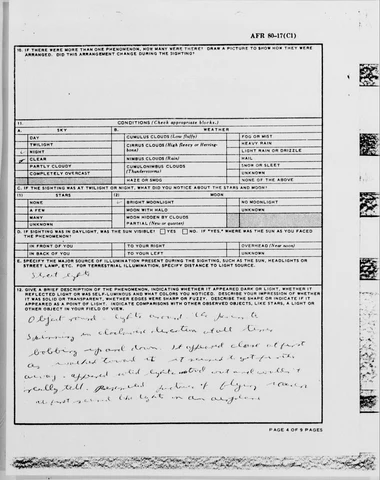 AFR 80-17(C1)
10. IF THERE WERE MORE THAN ONE PHENOMENON, HOW MANY WERE THERE? DRAW A PICTURE TO SHOW HOW THEY WERE
ARRANGED. DID THIS ARRANGEMENT CHANGE DURING THE SIGHTING?
11. CONDITIONS (Check appropriate blocks.)
A. SKY B. WEATHER
DAY CUMULUS CLOUDS (Low fluffy) FOG OR MIST
TWILIGHT CIRRUS CLOUDS (High fleecy or Herring-bone) HEAVY RAIN
NIGHT LIGHT RAIN OR DRIZZLE
CLEAR NIMBUS CLOUDS (Rain) HAIL
PARTLY CLOUDY CUMULONIMBUS CLOUDS (Thunderstorms) SNOW OR SLEET
COMPLETELY OVERCAST UNKNOWN
HAZE OR SMOG NONE OF THE ABOVE
C. IF THE SIGHTING WAS AT TWILIGHT OR NIGHT, WHAT DID YOU NOTICE ABOUT THE STARS AND MOON?
(1) STARS (2) MOON
NONE BRIGHT MOONLIGHT NO MOONLIGHT
A FEW MOON WITH HALO UNKNOWN
MANY MOON HIDDEN BY CLOUDS
UNKNOWN PARTIAL (New or quarter)
D. IF SIGHTING WAS IN DAYLIGHT, WAS THE SUN VISIBLE? YES NO. IF "YES," WHERE WAS THE SUN AS YOU FACED
THE PHENOMENON?
IN FRONT OF YOU TO YOUR RIGHT OVERHEAD (Near noon)
IN BACK OF YOU TO YOUR LEFT UNKNOWN
E. SPECIFY THE MAJOR SOURCE OF ILLUMINATION PRESENT DURING THE SIGHTING, SUCH AS THE SUN, HEADLIGHTS OR
STREET LAMP, ETC. FOR TERRESTRIAL ILLUMINATION, SPECIFY DISTANCE TO LIGHT SOURCE.
Street lights
12. GIVE A BRIEF DESCRIPTION OF THE PHENOMENON, INDICATING WHETHER IT APPEARED DARK OR LIGHT, WHETHER IT
REFLECTED LIGHT OR WAS SELF-LUMINOUS AND WHAT COLORS YOU NOTICED. DESCRIBE YOUR IMPRESSION OF WHETHER
IT WAS SOLID OR TRANSPARENT, WHETHER EDGES WERE SHARP OR FUZZY. DESCRIBE THE SHAPE OR INDICATE IF IT
APPEARED AS A POINT OF LIGHT. INDICATE COMPARISONS WITH OTHER OBSERVED OBJECTS, LIKE STARS, A LIGHT OR
OTHER OBJECT IN YOUR FIELD OF VIEW.
Object round lights around
Spinning in clockwise direction at all times
bobbing up and down. It appeared close at first
as walked toward it it seemed to get farther
away. appeared solid lights and
really tell. flying saucer
at first seemed like lights on an airplane
PAGE 4 OF 5 PAGES